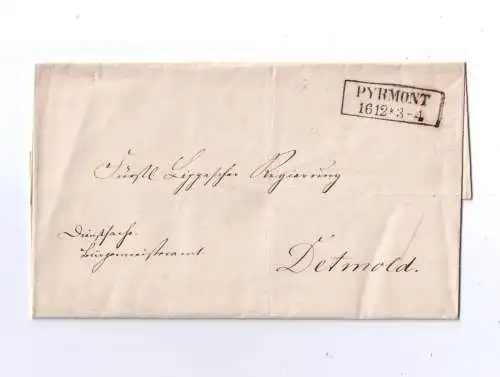 PYRMONT
16 12 * 3-4
Fürstl Lippescher Regierung
Dienstsache.
Bürgermeisteramt.
Detmold.